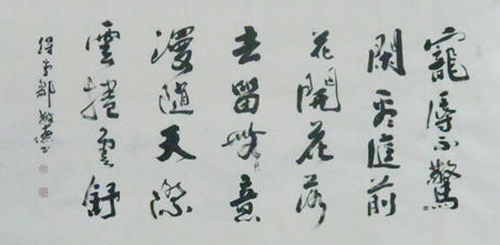 寵辱不驚
閑看庭前
花開花落
去留無意
漫隨天際
雲捲雲舒